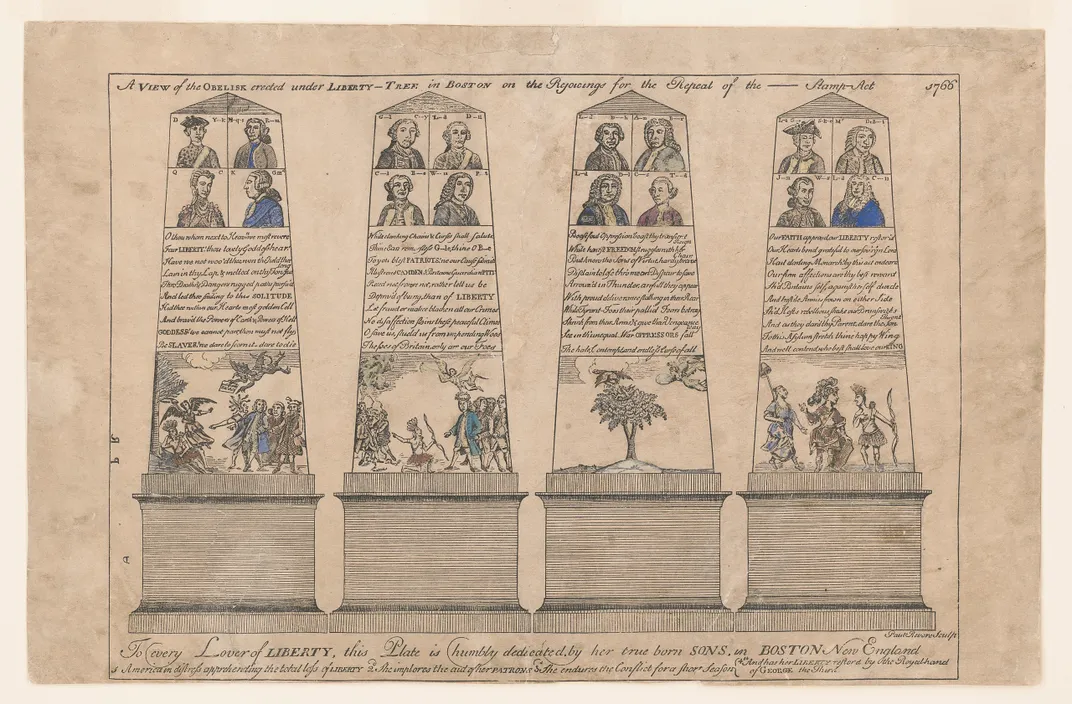 A VIEW of the OBELISK erected under LIBERTY-TREE in BOSTON on the Rejoicings for the Repeal of the —— Stamp-Act 1766
D Y-k
Q C
K Geo
O thou whom next to Heav'n we most revere
Fair LIBERTY, thou lovely Goddess hear
Have we not woo'd thee, won thee, held thee long
Lain in thy Lap & melted on thy Tongue
Thro Deaths & Dangers rugged paths pursu'd
And led thee smiling to this SOLITUDE
Hid thee within our Hearts most golden Cell
And brav'd the Powers of Earth & Powers of Hell
GODDESS! we cannot part, thou must not fly;
Be SLAVES! we dare to scorn it—dare to die.
While clanking Chains & Curses shall salute
Thine Ears remorseless G—le, thine O B—e
To you blest PATRIOTS, we our Cause submit
Illustrious CAMDEN, Britains Guardian PITT
Recede not, frown not, rather let us be
Depriv'd of being than of LIBERTY
Let fraud or malice blacken all our Crimes
No disaffection stains these peaceful Climes
O save us, shield us from impending Woes
The foes of Britain only are our Foes.
Boast foul Oppression boast thy transient Reign
While honest FREEDOM struggles with her Chain
But know the Sons of Virtue, hardy brave
Disdain to lose thro mean Despair to save
Arrouz'd in Thunder, awfull they appear
With proud deliverance stalking in their Rear
While Tyrant-Foes their pallid Fears betray
Shrink from their Arms, & give their Vengeance way
See in th' unequal War OPPRESSORS fall
The hate, Contempt, and endless Curse of all
Our FAITH approv'd, our LIBERTY restor'd
Our Hearts bend grateful to our sov'reign Lord
Hail darling Monarch! by this act endear'd
Our firm affections are thy best reward
Sh'd Britains self, against herself divide
And hostile Armies frown on either Side
Sh'd Hosts rebellious shake our Brunswick's Throne
And as they dar'd thy Parent dare the Son
To this Asylum stretch thine happy Wing
And we'll contend who best shall love our KING
P R
Paul Revere Sculp
To every Lover of LIBERTY, this Plate is humbly dedicated, by her true born SONS, in BOSTON New England
America in distress apprehending the total loss of LIBERTY 2d She implores the aid of her PATRONS 3d She endures the Conflict for a short Season 4th And has her LIBERTY restord by the Royal hand
of GEORGE the Third